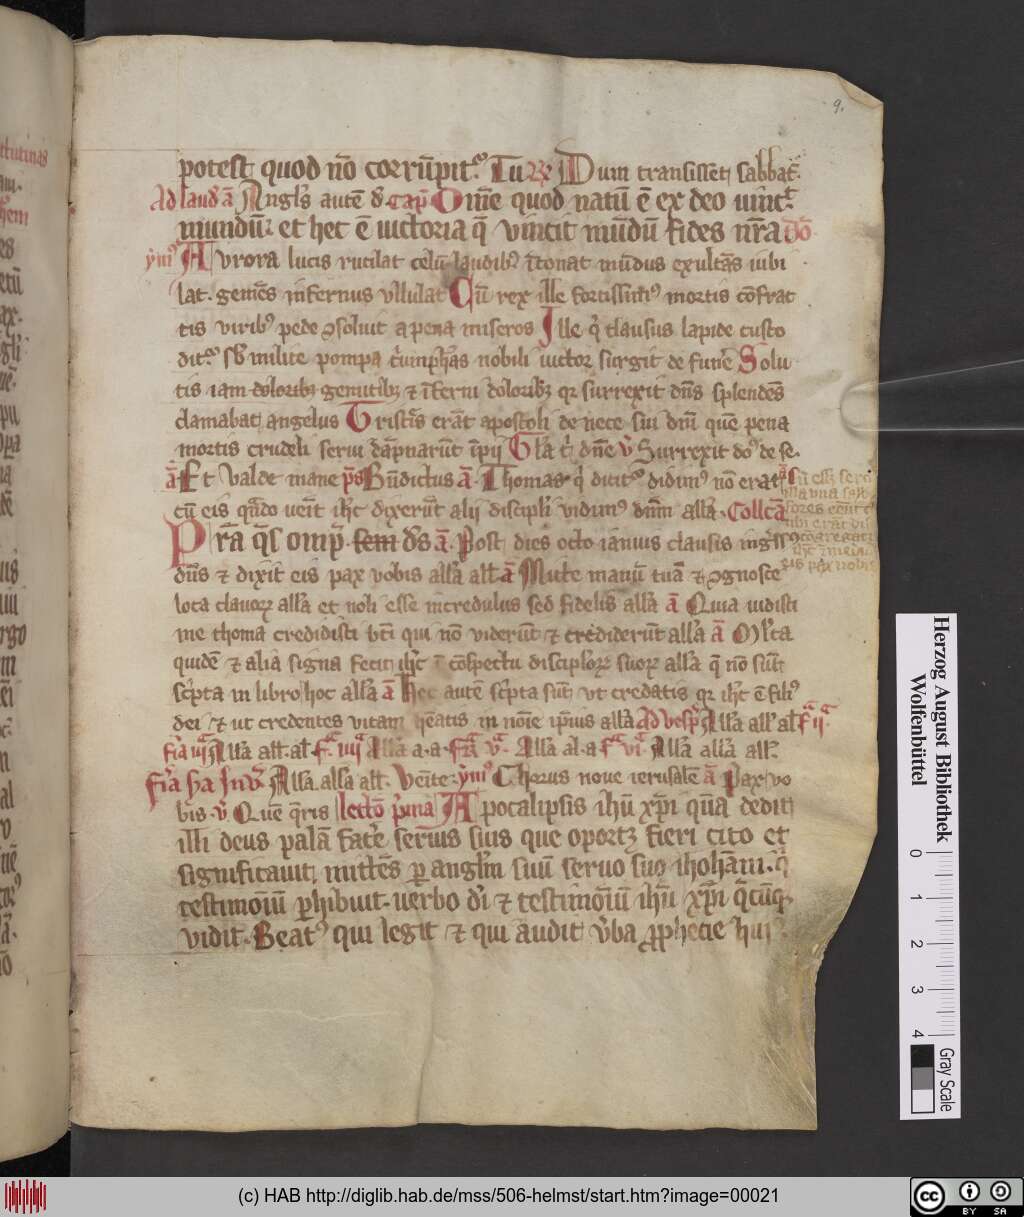 9.
potest quod nō corrūpit᷒. Tu Rx Dum transisset sabbat̄.
Ad laud̄ ā Angl̓s autē d̄. Cap̄ Omē quod natū ē ex deo uinc̄t
mundū: et hec ē uictoria q̄ vincit mūdū fides nr̄a dō
ym᷒ Avrora lucis rutilat celū laudib᷒ ītonat mūdus exultās iubi
lat. gemēs infernus vllulat Cū rex ille fortissim᷒ mortis cōfrac
tis virib᷒ pede ꝯsoluit a pena miseros Ille q̄ clausus lapide custo
dit᷒ sb̄ milite pompa t̄umphās nobili uictor surgit de funē Solu
tis iam doloribꝫ gemitibꝫ ⁊ īferni doloribꝫ qꝛ surrexit dn̄s splendēs
clamabat angelus Tristēs erāt apostoli de nece sui dn̄i quē pena
mortis crudeli serui dāpnarūt īpii Gl̄a t̄ dn̄e v̄ Surrexit do᷒ de se.
ā Et valde mane ps̄ Bn̄dictus ā. Thomas q̄ dicit᷒ didim᷒ nō erat
cū eis qn̄do ueīt ih̄c dixerūt alij discipl̓i vidim᷒ dn̄m all̓a. Collc̄a
Pr̄a q̄s omp̄. sem d̄s ā. Post dies octo ianuis clausis ingr̄ss᷒
dn̄s ⁊ dixit eis pax vobis all̓a all̓ ā Mitte manū tuā ⁊ ꝯgnosce
loca clauoꝝ all̓a et noli esse incredulus sed fidelis all̓a ā Quia uidisti
me thoma credidisti bt̄i qui nō viderūt ⁊ crediderūt all̓a ā Ml̓ta
quidē ⁊ alia signa fecit ih̄c ī cōspectu discipl̓oꝝ suoꝝ all̓a q̄ nō sūt
sc̄pta in libro hoc all̓a ā Hec autē sc̄pta sūt vt credatis qꝛ ih̄c ē fili᷒
dei ⁊ ut credentes vitam hēatis in noīe ip̄ius all̓a Ad vesp̄ All̓a all̓ al̓ F̄ ijᵃ
fīa iijᵃ All̓a all̓. al̓ F̄ᵃ iiijᵃ All̓a a. a. fīa vᵃ. All̓a al̓. a fᵃ viᵃ. All̓a all̓a all̓.
All̓a. all̓a all̓. Venīte. ym᷒ Chorus noue ierusalē ā Pax vo
bis. v̄ Quē q̄ris lectō p̄ma Apocalipsis ihū xp̄i quā dedit
illi deus palā facē seruis suis que oportꝫ fieri cito et
significauit mittēs ꝑ angl̓m suū seruo suo ihohāni. q̄
testimoīū ꝑhibuit. uerbo dī ⁊ testimoīū ihū xp̄i q̄cūqꝫ
vidit. Beat᷒ qui legit ⁊ qui audit v̄ba ꝓphecie hui᷒
Herzog August Bibliothek
Wolfenbüttel
0 1 2 3 4
Gray Scale
(c) HAB http://diglib.hab.de/mss/506-helmst/start.htm?image=00021
cc BY SA